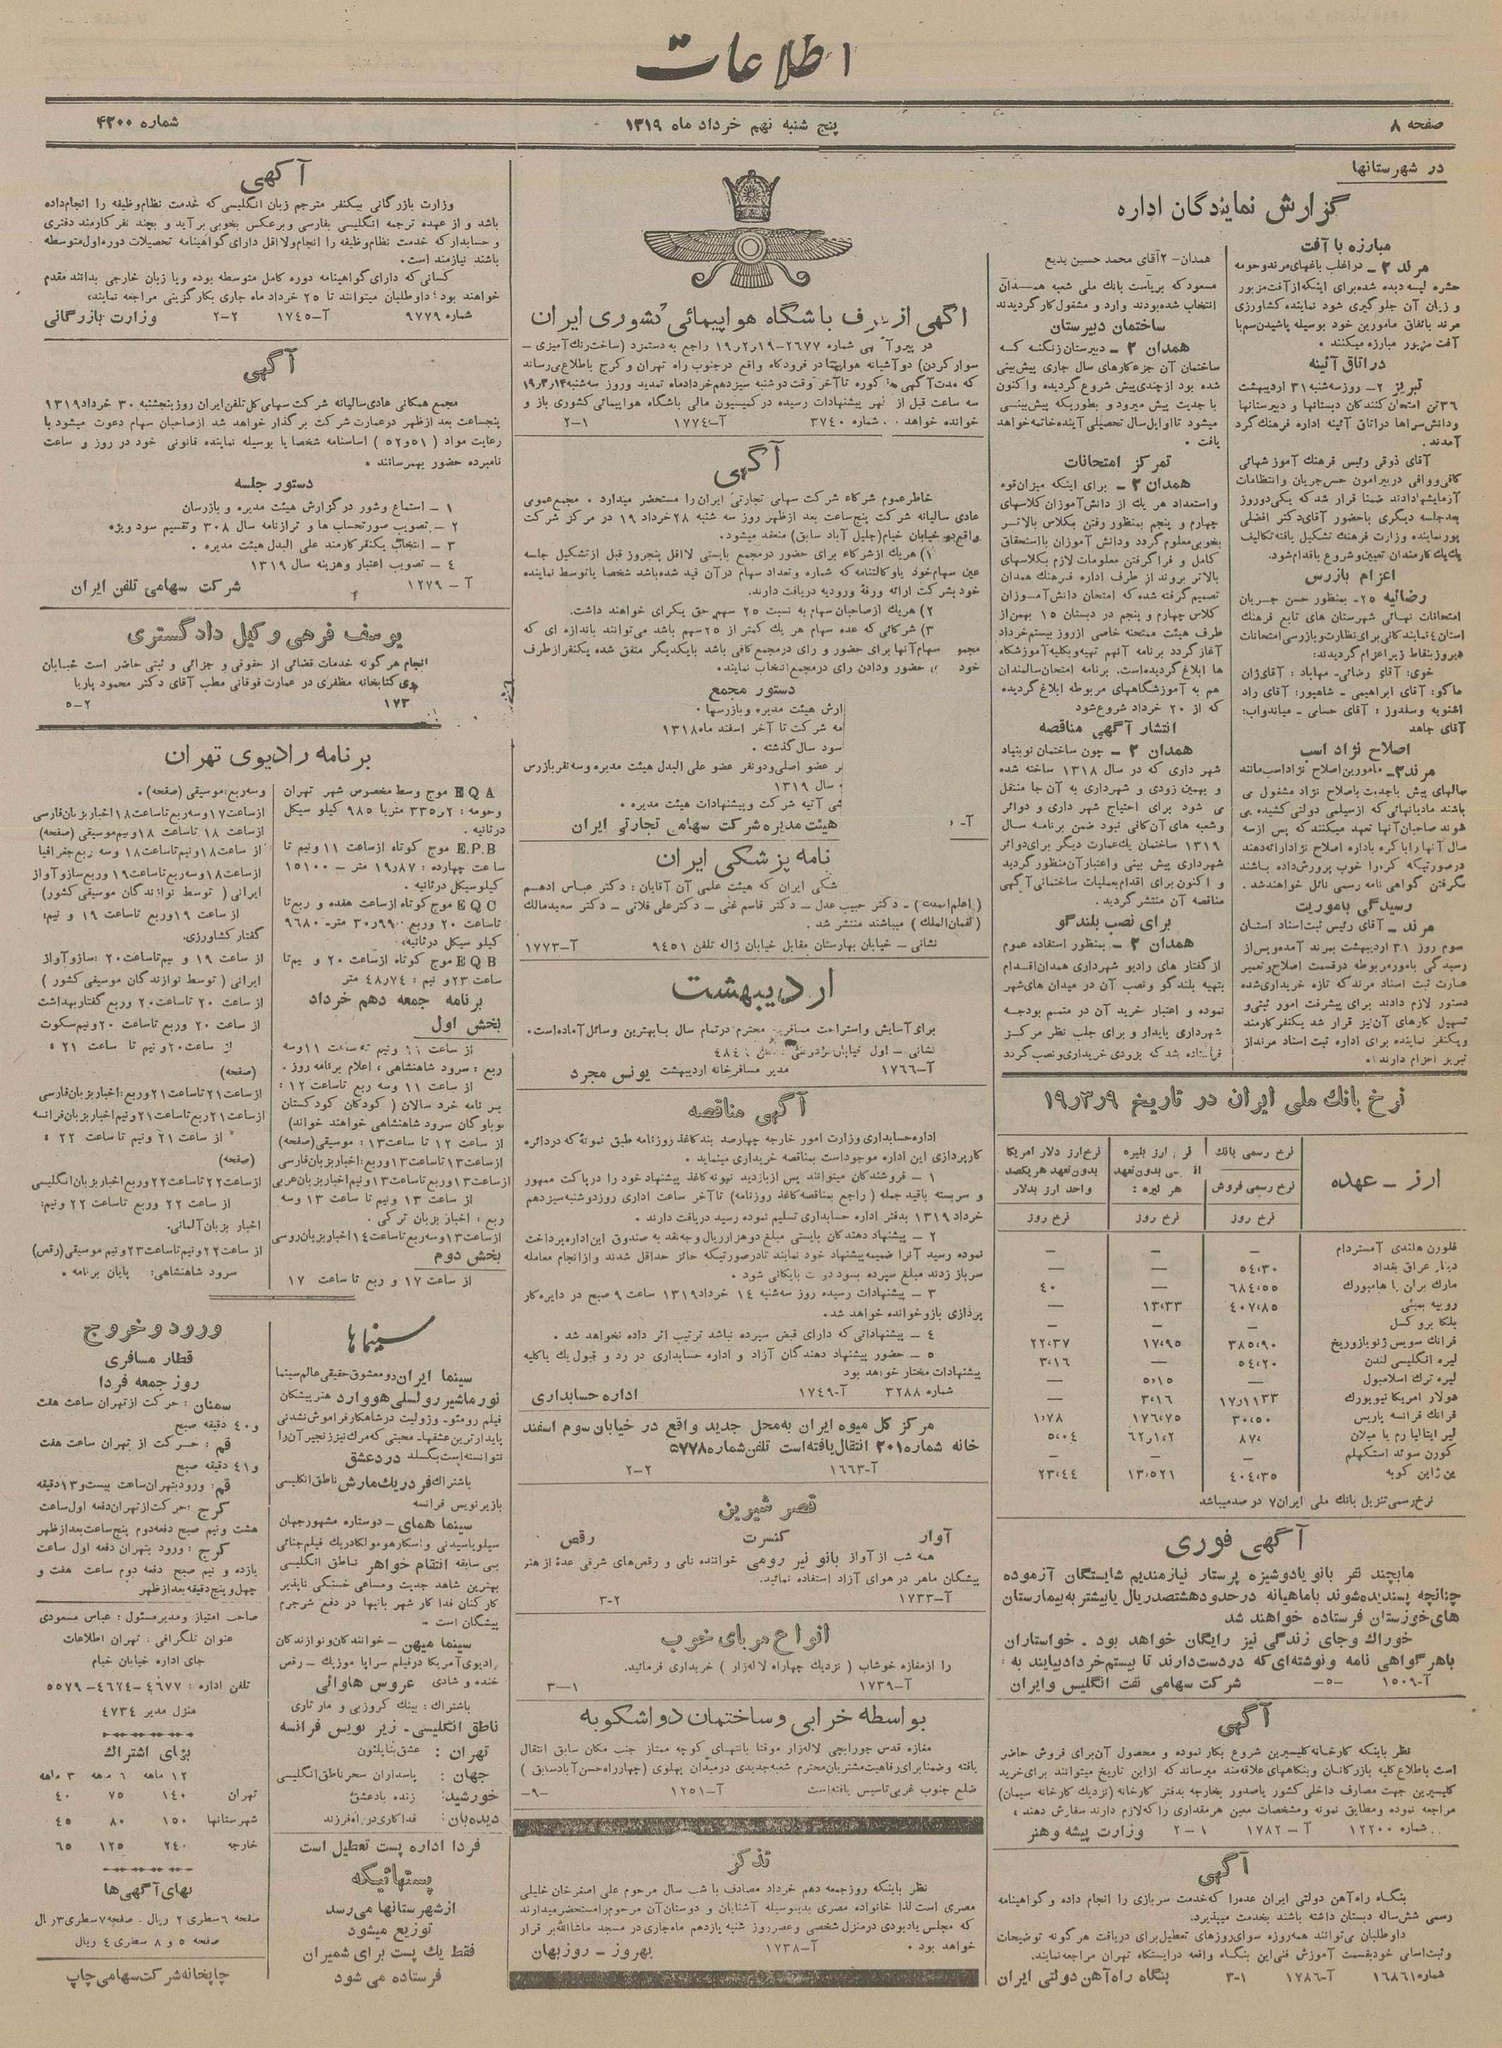 اطلاعات
صفحه ۸
پنج شنبه نهم خرداد ماه ۱۳۱۹
شماره ۴۲۰۰
در شهرستانها
گزارش نمایندگان اداره
مبارزه با آفت
مرند ۲ - در اغلب باغهای مرند و حومه
حشره لیسه دیده شده برای اینکه از آفت مزبور
و زیان آن جلوگیری شود نماینده کشاورزی
مرند باتفاق مامورین خود بوسیله پاشیدن سم با
آفت مزبور مبارزه میکنند .
در اتاق آئینه
تبریز ۲- روز سه شنبه ۳۱ اردیبهشت
۳۶ تن امتحان کنندگان دبستانها و دبیرستانها
و دانش سراها در اتاق آئینه اداره فرهنگ گرد
آمدند .
آقای ذوقی رئیس فرهنگ آموز شهائی
کافی و وافی در پیرامون حسن جریان و انتظامات
آزمایشها دادند ضمنا قرار شد که یکی دو روز
بعد جلسه دیگری با حضور آقای دکتر افضلی
پور نماینده وزارت فرهنگ تشکیل یافته تکالیف
یک یک کارمندان تعیین و شروع باقدام شود.
اعزام بازرس
رضائیه ۲۵- بمنظور حسن جریان
امتحانات نهائی شهرستان های تابع فرهنگ
استان ۴ نمایندگانی برای نظارت و بازرسی امتحانات
دیروز بنقاط زیر اعزام گردیدند:
خوی: آقای رضائی- مهاباد : آقای ژان
ماکو: آقای ابراهیمی - شاهپور: آقای راد
اشنویه و سلدوز : آقای حسابی - میاندواب:
آقای جاهد
اصلاح نژاد اسب
مرند۳- مامورین اصلاح نژاد اسب مانند
سالهای پیش با جدیت باصلاح نژاد مشغول می
باشند مادیانهائی که از سیلمی دولتی کشیده می
شوند صاحبان آنها تعهد میکنند که پس از سه
سال آنها را با کره باداره اصلاح نژاد ارائه دهند
در صورتیکه کره را خوب پرورش داده باشند
بگرفتن گواهی نامه رسمی نائل خواهند شد .
رسیدگی بامورثبت
مرند - آقای رئیس ثبت اسناد استان
سوم روز ۳۱ اردیبهشت بمرند آمده و پس از
رسیدگی بامور مربوطه در قسمت اصلاح و تعمیر
عمارت ثبت اسناد مرند که تازه خریداری شده
دستور لازم دادند برای پیشرفت امور ثبتی و
تسهیل کارهای آن نیز قرار شد یکنفر کارمند
و یکنفر نماینده برای اداره ثبت اسناد مرند از
تبریز اعزام دارند .
همدان- ۲ آقای محمد حسین بدیع
مسعود که بریاست بانک ملی شعبه همدان
انتخاب شده بودند وارد و مشغول کار گردیدند
ساختمان دبیرستان
همدان ۲ - دبیرستان زنگنه که
ساختمان آن جزء کارهای سال جاری پیش بینی
شده بود از چندی پیش شروع گردیده و اکنون
با جدیت پیش میرود و بطوریکه پیش بینی
میشود تا اوایل سال تحصیلی آینده خاتمه خواهد
یافت .
تمرکز امتحانات
همدان ۲ - برای اینکه میزان قوه
و استعداد هر یک از دانش آموزان کلاسهای
چهارم و پنجم بمنظور رفتن بکلاس بالاتر
بخوبی معلوم گردد و دانش آموزان با استحقاق
کامل و فرا گرفتن معلومات لازم بکلاسهای
بالاتر بروند از طرف اداره فرهنگ همدان
تصمیم گرفته شده که امتحان دانش آموزان
کلاس چهارم و پنجم در دبستان ۱۵ بهمن از
طرف هیئت ممتحنه خاصی از روز بیستم خرداد
آغاز گردد برنامه آنهم تهیه و بکلیه آموزشگاه
ها ابلاغ گردیده است. برنامه امتحان سالمندان
هم به آموزشگاههای مربوطه ابلاغ گردیده
که از ۲۰ خرداد شروع شود
انتشار آگهی مناقصه
همدان ۲ - چون ساختمان نو بنیاد
شهر داری که در سال ۱۳۱۸ ساخته شده
و بهمین زودی و شهرداری به آن جا منتقل
می شود برای احتیاج شهر داری و دوائر
و شعبه های آن کافی نبود ضمن برنامه سال
۱۳۱۹ ساختمان یک عمارت دیگر برای دوائر
شهرداری پیش بینی و اعتبار آن منظور گردید
و اکنون برای اقدام بعملیات ساختمانی آگهی
مناقصه آن منتشر گردید .
برای نصب بلندگو
همدان ۲ - بمنظور استفاده عموم
از گفتار های رادیو شهرداری همدان اقدام
بتهیه بلندگو و نصب آن در میدان های شهر
نموده و اعتبار خرید آن در متمم بودجه
شهرداری پایدار و برای جلب نظر مرکز
فرستاده شد که بزودی خریداری و نصب گردد
نرخ بانک ملی ایران در تاریخ ۱۹ر۳ر۹
ارز - عهده
نرخ رسمی بانک
نرخ رسمی فروش
نرخ روز
ارز بلیره
بدون تعهد
هر لیره :
نرخ روز
نرخ ارز دلار امریکا
بدون تعهد هر یکصد
واحد ارز بدلار
نرخ روز
فلورن هلندی آمستردام — — —
دینار عراق بغداد ۵۴،۳۰ — —
مارک بران یا هامبورک ۶۸۴،۵۵ — ۴۰
روپیه بمبئی ۴۰۷،۸۵ ۱۳،۳۳ —
بلکا بروکسل — — —
فرانک سویس ژنو یا زوریخ ۳۸۵،۹۰ ۱۷،۹۵ ۲۲،۳۷
لیره انگلیسی لندن ۵۴،۲۰ — ۳،۱۶
لیره ترک اسلامبول — ۵،۱۵ —
دولار امریکا نیویورک ۱۷٫۱۱۳۳ ۳،۱۶ —
فرانک فرانسه پاریس ۳۰،۵۰ ۱۷۶،۷۵ ۱،۷۸
لیر ایتالیا رم یا میلان ۸۷، ۶۲٫۱،۲ ۵،۰۴
کورن سوئد استکهلم — — —
ین ژاپن کوبه ۴۰۴،۳۵ ۱۳،۵۲۱ ۲۳،۴۴
نرخ رسمی تنزیل بانک ملی ایران ۷ در صد میباشد
آگهی فوری
ما بچند نفر بانو یا دوشیزه پرستار نیازمندیم شایستگان آزموده
چنانچه پسندیده شوند با ماهیانه در حدود هشتصد ریال یا بیشتر به بیمارستان
های خوزستان فرستاده خواهند شد
خوراک و جای زندگی نیز رایگان خواهد بود . خواستاران
با هر گواهی نامه و نوشته ای که در دست دارند تا بیستم خرداد بیایند به :
آ-۱۵۰۹ -۵- شرکت سهامی نفت انگلیس و ایران
آگهی
نظر باینکه کارخانه گلیسیرین شروع بکار نموده و محصول آن برای فروش حاضر
است باطلاع کلیه بازرگانان و بنگاههای علاقه مند میرساند که از این تاریخ میتوانند برای خرید
گلیسیرین جهت مصارف داخلی کشور یا صدور بخارجه بدفتر کارخانه (نزدیک کارخانه سیمان)
مراجعه نموده و مطابق نمونه و مشخصات معین هر مقداری را که لازم دارند سفارش دهند .
شماره ۱۲۲۰۰ آ - ۱۷۸۲ ۱ - ۲ وزارت پیشه و هنر
آگهی
بنگاه راه آهن دولتی ایران عده را که خدمت سربازی را انجام داده و گواهینامه
رسمی شش ساله دبستان داشته باشند بخدمت میپذیرد.
داوطلبان می توانند همه روزه سوای روزهای تعطیل برای دریافت هر گونه توضیحات
و ثبت اسامی خود بقسمت آموزش فنی این بنگاه واقعه در ایستگاه تهران مراجعه نمایند.
شماره ۱۶۸۶۱ آ-۱۷۸۶ ۳-۱ بنگاه راه آهن دولتی ایران
آگهی از طرف باشگاه هواپیمائی کشوری ایران
در پیرو آگهی شماره ۲۶۷۷-۱۹ر۲ر۱۹ راجع به دستمزد (ساخت رنگ آمیزی -
سوار کردن) دو آشیانه هواپیما در فرودگاه واقع در جنوب راه تهران و کرج باطلاع می رساند
که مدت آگهی کوره تا آخر وقت دوشنبه سیزدهم خرداد ماه تمدید و روز سه شنبه ۱۴ر۳ر۱۹
سه ساعت قبل از ظهر پیشنهادات رسیده در کمیسیون مالی باشگاه هواپیمائی کشوری باز و
خوانده خواهد . شماره ۳۷۴۰ آ-۱۷۷۴ ۱-۲
آگهی
خاطر عموم شرکاء شرکت سهامی تجارتی ایران را مستحضر میدارد . مجمع عمومی
عادی سالیانه شرکت پنج ساعت بعد از ظهر روز سه شنبه ۲۸ خرداد ۱۹ در مرکز شرکت
واقع در خیابان خیام (جلیل آباد سابق) منعقد میشود.
۱) هر یک از شرکاء برای حضور در مجمع بایستی لااقل پنج روز قبل از تشکیل جلسه
عین سهام خود یا وکالتنامه که شماره و تعداد سهام در آن قید شده باشد شخصا یا توسط نماینده
خود بشرکت ارائه ورقة ورودیه دریافت دارند.
۲) هر یک از صاحبان سهام به نسبت ۲۵ سهم حق یک رای خواهند داشت.
۳) شرکائی که عده سهام هر یک کمتر از ۲۵ سهم باشد می توانند باندازه ای که
مجمو سهام آنها برای حضور و رای در مجمع کافی باشد با یکدیگر متفق شده یکنفر از طرف
خود حضور و دادن رای در مجمع انتخاب نمایند.
دستور مجمع
ارش هیئت مدیره و بازرسها .
مه شرکت تا آخر اسفند ماه ۱۳۱۸
سود سال گذشته .
بر عضو اصلی و دو نفر عضو علی البدل هیئت مدیره و سه نفر بازرس
سال ۱۳۱۹
آتیه شرکت و پیشنهادات هیئت مدیره .
آ- هیئت مدیره شرکت سهامی تجارتی ایران
نامه پزشکی ایران
شکی ایران که هیئت علمی آن آقایان : دکتر عباس ادهم
(اعلم الملک) - دکتر حبیب عدل - دکتر قاسم غنی - دکتر علی فلاتی - دکتر سعید مالک
(لقمان الملک) میباشند منتشر شد .
نشانی - خیابان بهارستان مقابل خیابان ژاله تلفن ۹۴۵۱ آ-۱۷۷۳
اردیبهشت
برای آسایش و استراحت مسافرین محترم در تمام سال با بهترین وسائل آماده است.
نشانی - اول خیابان ۴۸۴
آ-۱۷۶۶ مدیر مسافرخانه اردیبهشت یونس مجرد
آگهی مناقصه
اداره حسابداری وزارت امور خارجه چهارصد بند کاغذ روزنامه طبق نمونه که در دائره
کارپردازی این اداره موجود است بمناقصه خریداری مینماید .
۱ - فروشندگان میتوانند پس از بازدید نمونه کاغذ پیشنهاد خود را در پاکت ممهور
و سربسته باقید جمله ( راجع بمناقصه کاغذ روزنامه) تا آخر ساعت اداری روز دوشنبه سیزدهم
خرداد ۱۳۱۹ بدفتر اداره حسابداری تسلیم نموده رسید دریافت دارند .
۲ - پیشنهاد دهندگان بایستی مبلغ دو هزار ریال وجه نقد به صندوق این اداره پرداخت
نموده رسید آنرا ضمیمه پیشنهاد خود نمایند تا در صورتیکه حائز حداقل شدند و از انجام معامله
سر باز زدند مبلغ سپرده بسود دولت بایگانی شود .
۳ - پیشنهادات رسیده روز سه شنبه ۱۴ خرداد ۱۳۱۹ ساعت ۹ صبح در دایره کار
پردازی باز و خوانده خواهد شد.
۴ - پیشنهاداتی که دارای قبض سپرده نباشد ترتیب اثر داده نخواهد شد .
۵ - حضور پیشنهاد دهندگان آزاد و اداره حسابداری در رد و قبول یک یا کلیه
پیشنهادات مختار خواهد بود
شماره ۳۲۸۸ آ-۱۷۴۹ اداره حسابداری
مرکز کل میوه ایران به محل جدید واقع در خیابان سوم اسفند
خانه شماره ۲۰۱ انتقال یافته است تلفن شماره ۵۷۷۸
آ-۱۶۶۳ ۲-۲
قصر شیرین
آواز کنسرت رقص
همه شب از آواز بانو نیر رومی خواننده نامی و رقص های شرقی عدهٔ از هنر
پیشگان ماهر در هوای آزاد استفاده نمائید.
آ-۱۷۳۳ ۳-۲
انواع مربای خوب
را از مغازه خوشاب ( نزدیک چهاراه لاله زار ) خریداری فرمائید.
آ-۱۷۳۹ ۱-۳
بواسطه خرابی و ساختمان دو اشکوبه
مغازه قدس جورابچی لاله زار موقتا بانتهای کوچه ممتاز جنب مکان سابق انتقال
یافته و ضمنا برای رفاهیت مشتریان محترم شعبه جدیدی در میدان پهلوی (چهارراه حسن آباد سابق )
ضلع جنوب غربی تاسیس یافته است آ-۱۲۵۱ -۹-
تذکر
نظر باینکه روز جمعه دهم خرداد مصادف با شب سال مرحوم علی اصغر خان خلیلی
مصری است لذا خانواده مصری بدینوسیله آشنایان و دوستان آن مرحوم را مستحضر میدارند
که مجلس یادبودی در منزل شخصی و عصر روز شنبه یازدهم ماه جاری در مسجد ماشاالله بر قرار
خواهد بود . آ-۱۷۳۸ بهروز - روزبهان
آگهی
وزارت بازرگانی بیکنفر مترجم زبان انگلیسی که خدمت نظام وظیفه را انجام داده
باشد و از عهده ترجمه انگلیسی بفارسی و برعکس بخوبی بر آید و بچند نفر کارمند دفتری
و حسابدار که خدمت نظام وظیفه را انجام و لا اقل دارای گواهینامه تحصیلات دوره اول متوسطه
باشند نیازمند است .
کسانی که دارای گواهینامه دوره کامل متوسطه بوده و یا زبان خارجی بدانند مقدم
خواهند بود؛ داوطلبان میتوانند تا ۲۵ خرداد ماه جاری بکارگزینی مراجعه نمایند،
شماره ۹۷۷۹ آ-۱۷۴۵ ۲-۲ وزارت بازرگانی
آگهی
مجمع همگانی عادی سالیانه شرکت سهامی کل تلفن ایران روز پنجشنبه ۳۰ خرداد ۱۳۱۹
پنج ساعت بعد از ظهر در عمارت شرکت برگذار خواهد شد از صاحبان سهام دعوت میشود با
رعایت مواد (۵۱ و۵۲) اساسنامه شخصا یا بوسیله نماینده قانونی خود در روز و ساعت
نامبرده حضور بهمرسانند .
دستور جلسه
۱ - استماع و شور در گزارش هیئت مدیره و بازرسان
۲ - تصویب صورتحساب ها و ترازنامه سال ۳۰۸ و تقسیم سود ویژه
۳ - انتخاب یکنفر کارمند علی البدل هیئت مدیره .
۴ - تصویب اعتبار و هزینه سال ۱۳۱۹
آ - ۱۲۷۹ شرکت سهامی تلفن ایران
یوسف فرهی وکیل دادگستری
انجام هر گونه خدمات قضائی از حقوقی و جزائی و ثبتی حاضر است خیابان
کتابخانه مظفری در عمارت فوقانی مطب آقای دکتر محمود پاریا
۱۷۳ ۲-۵
برنامه رادیوی تهران
EQA موج وسط مخصوص شهر تهران
وحومه : ۳۳۵٫۲ متر یا ۹۸۵ کیلو سیکل
در ثانیه .
E.P.B موج کوتاه از ساعت ۱۱ و نیم تا
ساعت چهارده : ۱۹٫۸۷ متر - ۱۵۱۰۰
کیلوسیکل در ثانیه .
EQC موج کوتاه از ساعت هفده و ربع تا
تا ساعت ۲۰ و ربع ۳۰٫۹۹ متر- ۹۶۸۰
کیلو سیکل در ثانیه،
EQB موج کوتاه از ساعت ۲۰ و نیم تا
ساعت ۲۳ و نیم : ۴۸٫۷۴ متر
برنامه جمعه دهم خرداد
بخش اول
از ساعت ۱۱ و نیم تا ساعت ۱۱ و سه
ربع : سرود شاهنشاهی ، اعلام برنامه روز .
از ساعت ۱۱ وسه ربع تا ساعت ۱۲ :
برنامه خرد سالان ( کودکان کودکستان
نوباوگان سرود شاهنشاهی خواهند خواند)
از ساعت ۱۲ تا ساعت ۱۳ : موسیقی (صفحه)
از ساعت ۱۳ تا ساعت ۱۳ و ربع: اخبار بزبان فارسی
از ساعت ۱۳ و ربع تا ساعت ۱۳ و نیم اخبار بزبان عربی
از ساعت ۱۳ و نیم تا ساعت ۱۳ و سه
ربع : اخبار بزبان ترکی .
از ساعت ۱۳ و سه ربع تا ساعت ۱۴ اخبار بزبان روسی
بخش دوم
از ساعت ۱۷ و ربع تا ساعت ۱۷
وسه ربع: موسیقی (صفحه) .
از ساعت ۱۷ وسه ربع تا ساعت ۱۸ اخبار بزبان فارسی
از ساعت ۱۸ تا ساعت ۱۸ و نیم موسیقی (صفحه)
از ساعت ۱۸ و نیم تا ساعت ۱۸ وسه ربع جغرافیا
از ساعت ۱۸ وسه ربع تا ساعت ۱۹ و ربع ساز و آواز
ایرانی ( توسط نوازندگان موسیقی کشور)
از ساعت ۱۹ و ربع تا ساعت ۱۹ و نیم:
گفتار کشاورزی.
از ساعت ۱۹ و نیم تا ساعت ۲۰ : ساز و آواز
ایرانی ( توسط نوازندگان موسیقی کشور )
از ساعت ۲۰ تا ساعت ۲۰ و ربع گفتار بهداشت
از ساعت ۲۰ و ربع تا ساعت ۲۰ و نیم سکوت
از ساعت ۲۰ و نیم تا ساعت ۲۱ :
(صفحه)
از ساعت ۲۱ تا ساعت ۲۱ و ربع: اخبار بزبان فارسی
از ساعت ۲۱ و ربع تا ساعت ۲۱ و نیم اخبار بزبان فرانسه
از ساعت ۲۱ و نیم تا ساعت ۲۲ :
(صفحه)
از ساعت ۲۲ تا ساعت ۲۲ و ربع اخبار بزبان انگلیسی
از ساعت ۲۲ و ربع تا ساعت ۲۲ و نیم:
اخبار بزبان آلمانی.
از ساعت ۲۲ و نیم تا ساعت ۲۳ و نیم موسیقی (رقص)
سرود شاهنشاهی: پایان برنامه .
سینماها
سینما ایران دو معشوق حقیقی عالم سینما
نورماشیرر و لسلی هووارد هنر پیشگان
فیلم رومئو- و ژولیت در شاهکار فراموش نشدنی
پایدارترین عشقها - محبتی که مرگ نیز زنجیر آن را
نتوانسته است بگسلد در د عشق
باشتراک فردریک مارش ناطق انگلیسی
با زیر نویس فرانسه
سینما همای - دو ستاره مشهور جهان
سیلو یاسیدنی و اسکار هومولکا در یک فیلم جنائی
بی سابقه انتقام خواهر ناطق انگلیسی
بهترین شاهد جدیت و مساعی خستگی ناپذیر
کارکنان فدا کار شهر بانیها در دفع شر جرم
پیشگان است .
سینما میهن - خوانندگان و نوازندگان
رادیوی آمریکا در فیلم سراپا موزیک - رقص
خنده و شادی عروس هاوائی
باشتراک : بینک کروزبی و مارتاری
ناطق انگلیسی - زیر نویس فرانسه
تهران : عشق بناپلئون
جهان : پاسداران سحر ناطق انگلیسی
خورشید: زنده باد عشق
دیده بان: فداکاری در راه فرزند
فردا اداره پست تعطیل است
پستهائیکه
از شهرستانها می رسد
توزیع میشود
فقط یک پست برای شمیران
فرستاده می شود
ورود و خروج
قطار مسافری
روز جمعه فردا
سمنان : حرکت از تهران ساعت هفت
و ۴۰ دقیقه صبح
قم : حرکت از تهران ساعت هفت
و ۴۱ دقیقه صبح
قم: ورود بتهران ساعت بیست و ۱۳ دقیقه
کرج :حرکت از تهران دفعه اول ساعت
هشت و نیم صبح دفعه دوم پنج ساعت بعد از ظهر
کرج : ورود بتهران دفعه اول ساعت
یازده و نیم صبح دفعه دوم ساعت هفت و
چهل و پنج دقیقه بعد از ظهر
صاحب امتیاز و مدیر مسئول : عباس مسعودی
عنوان تلگرافی : تهران اطلاعات
جای اداره خیابان خیام
تلفن اداره : ۴۶۷۷-۴۶۷۴-۵۵۷۹
منزل مدیر ۴۷۳۴
برای اشتراک
۱۲ ماهه ۶ ماهه ۳ ماهه
تهران ۱۴۰ ۷۵ ۴۰
شهرستانها ۱۵۰ ۸۰ ۴۵
خارجه ۲۴۰ ۱۲۵ ۶۵
بهای آگهی ها
صفحه ۶ سطری ۲ ریال . صفحه ۷ سطری ۳ ریال
صفحه ۵ و ۸ سطری ۴ ریال
چاپخانه شرکت سهامی چاپ